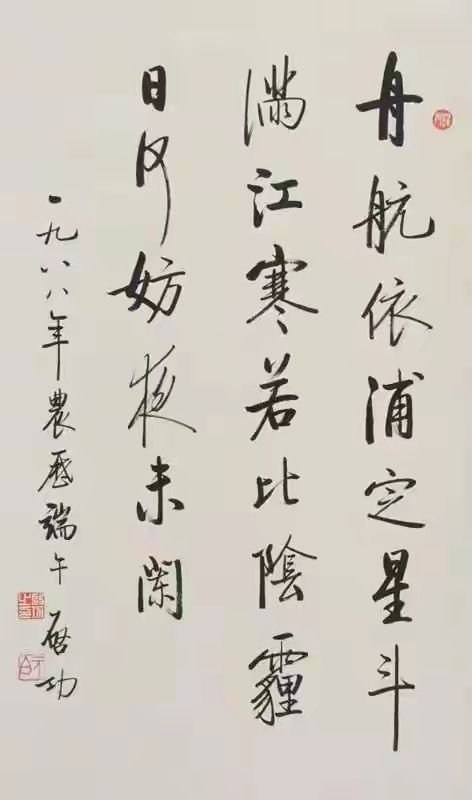 舟航依浦定星斗
滿江寒若比陰霾
日何妨夜未闌
一九八八年農曆端午 启功